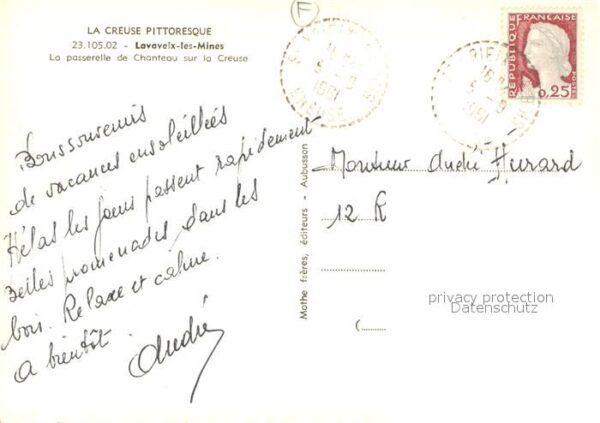 LA CREUSE PITTORESQUE
23.105.02 - Lavaveix-les-Mines
La passerelle de Chanteau sur la Creuse
F
CREUSE
1961
1961
REPUBLIQUE FRANÇAISE
0,25
Bons souvenirs
de vacances ensoleillées
Hélas les jours passent rapidement
Belles promenades dans les
bois. Relaxe et calme.
A bientôt.
André
Mothe frères, éditeurs - Aubusson
Monsieur André Hurard
12 R
(
privacy protection
Datenschutz